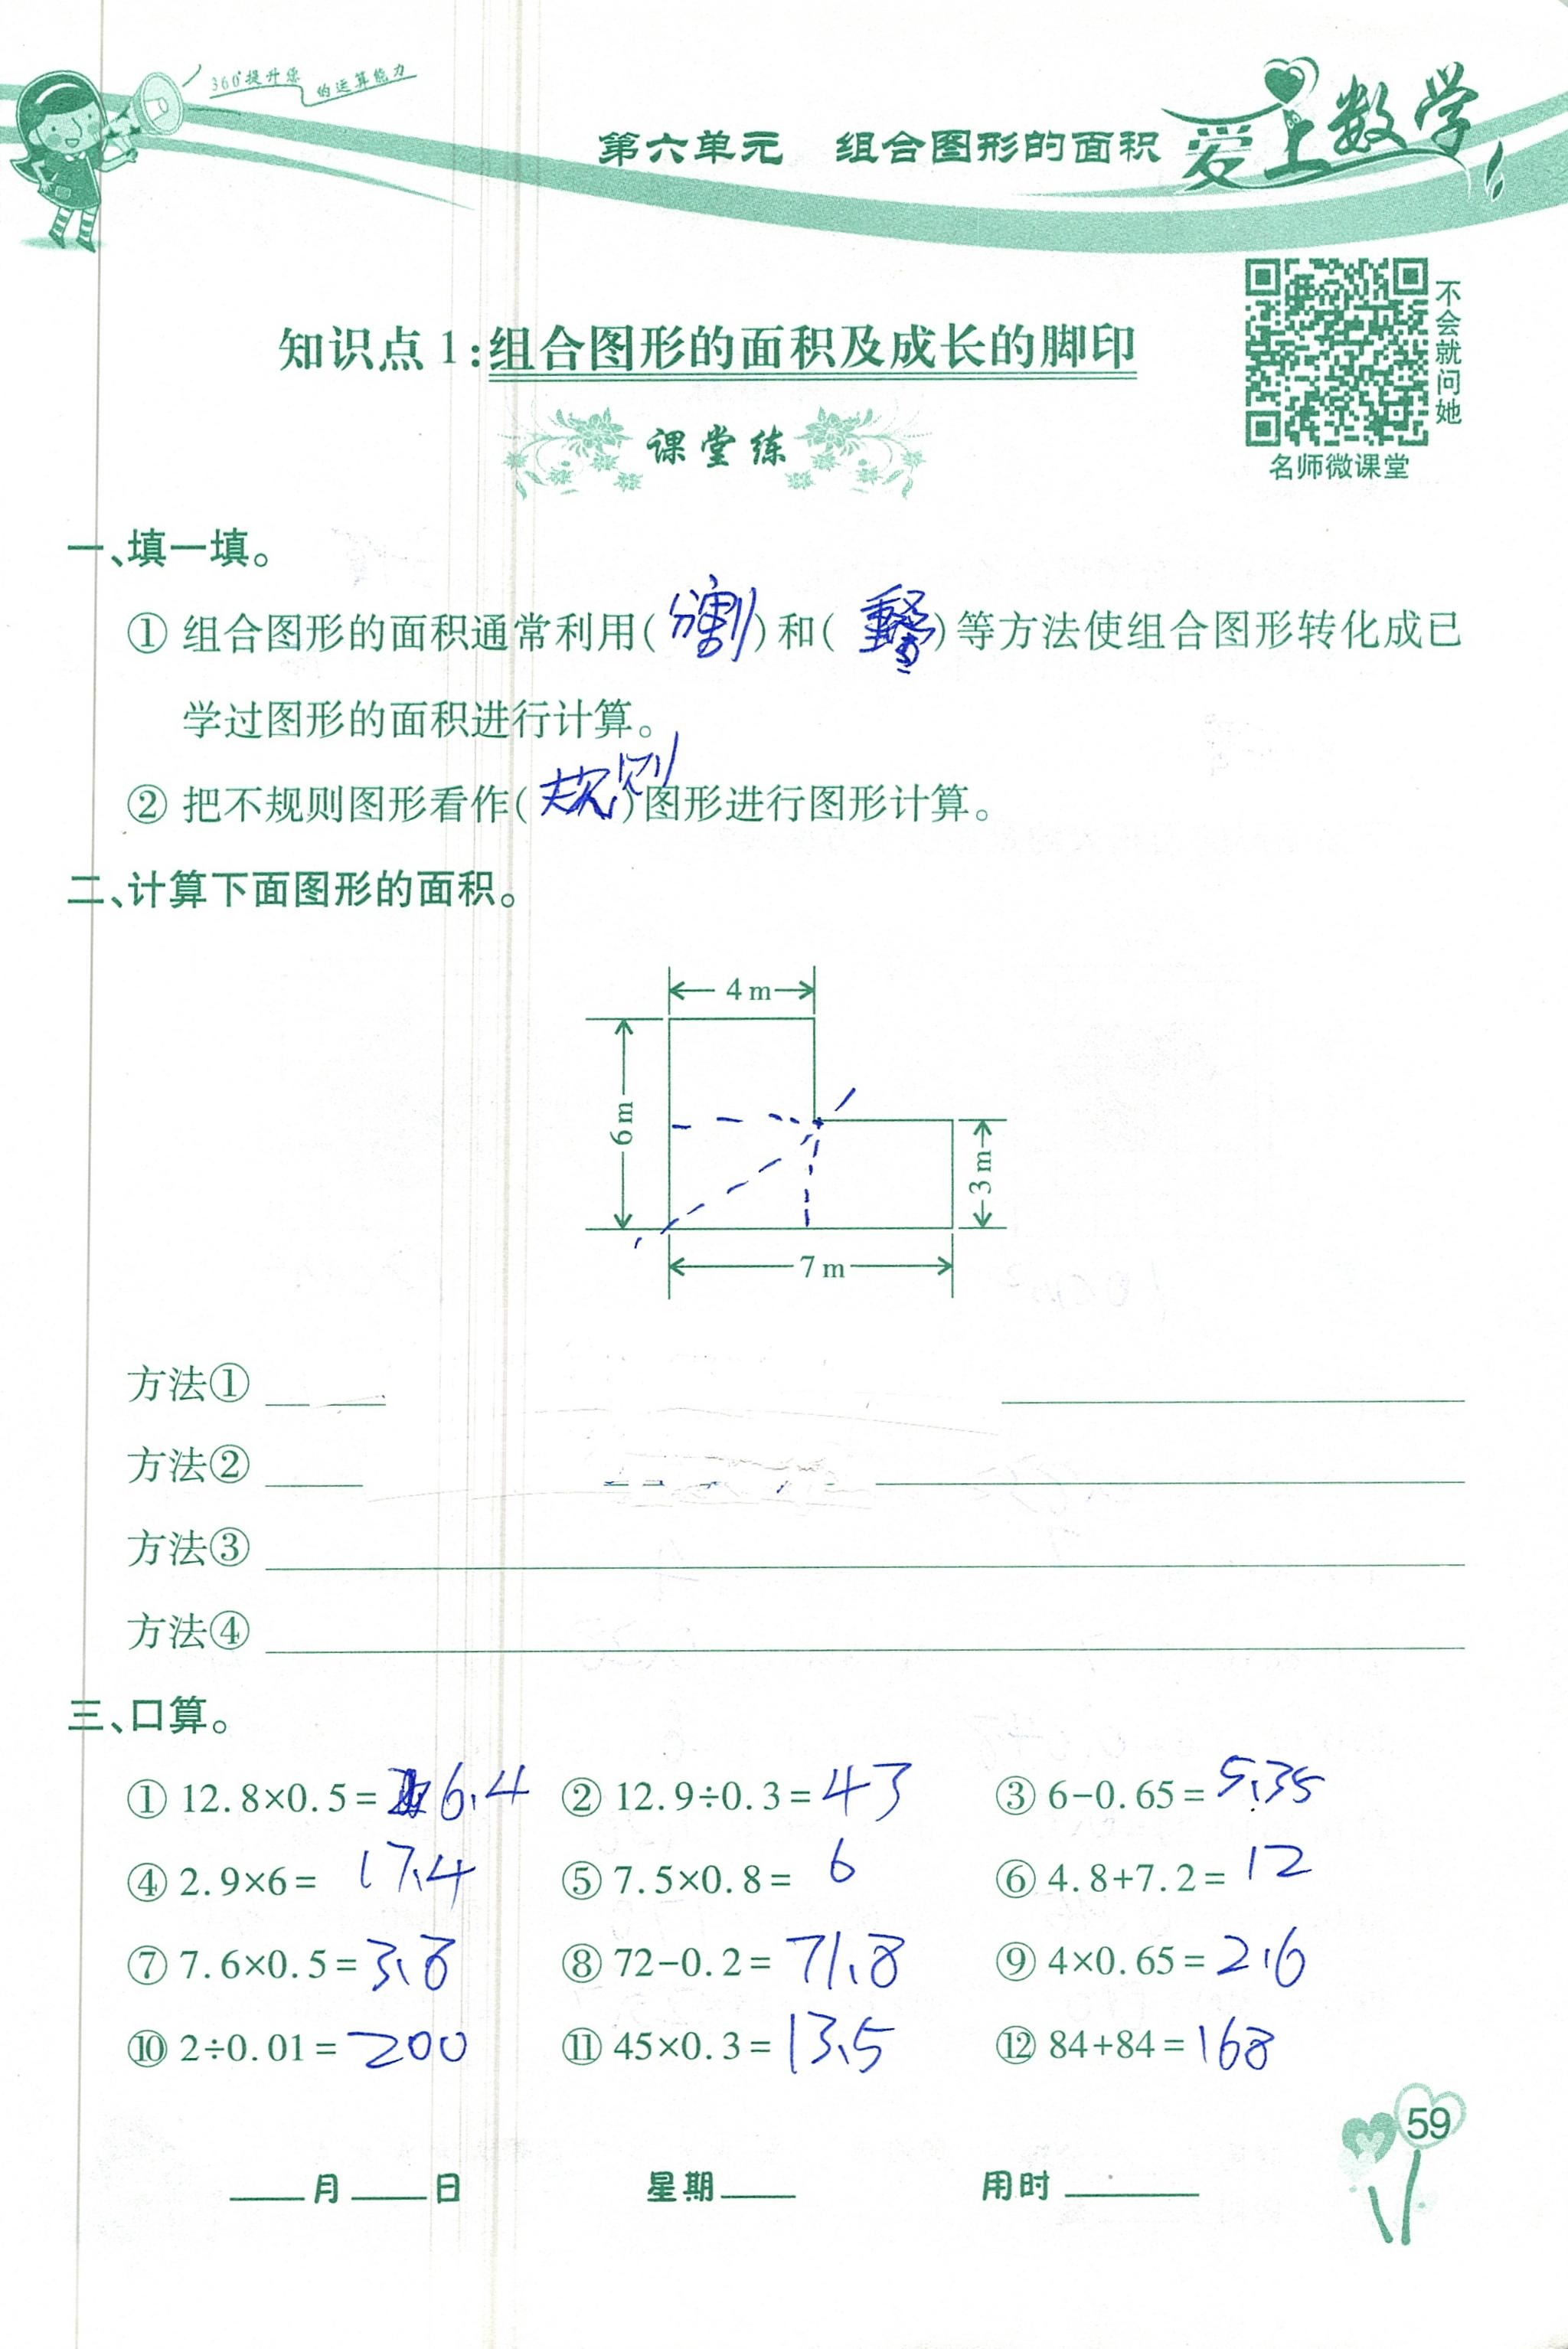 360°提升您的运算能力
第六单元 组合图形的面积 爱上数学
不会就问她
名师微课堂
知识点1:组合图形的面积及成长的脚印
课堂练
一、填一填。
① 组合图形的面积通常利用(分割)和( )等方法使组合图形转化成已
学过图形的面积进行计算。
② 把不规则图形看作(规则)图形进行图形计算。
二、计算下面图形的面积。
4 m
6 m
3 m
7 m
方法①
方法②
方法③
方法④
三、口算。
① 12.8×0.5= 6.4 ② 12.9÷0.3= 43 ③ 6-0.65= 5.35
④ 2.9×6= 17.4 ⑤ 7.5×0.8= 6 ⑥ 4.8+7.2= 12
⑦ 7.6×0.5= 3.8 ⑧ 72-0.2= 71.8 ⑨ 4×0.65= 2.6
⑩ 2÷0.01= 200 ⑪ 45×0.3= 13.5 ⑫ 84+84= 168
59
____月____日 星期____ 用时______